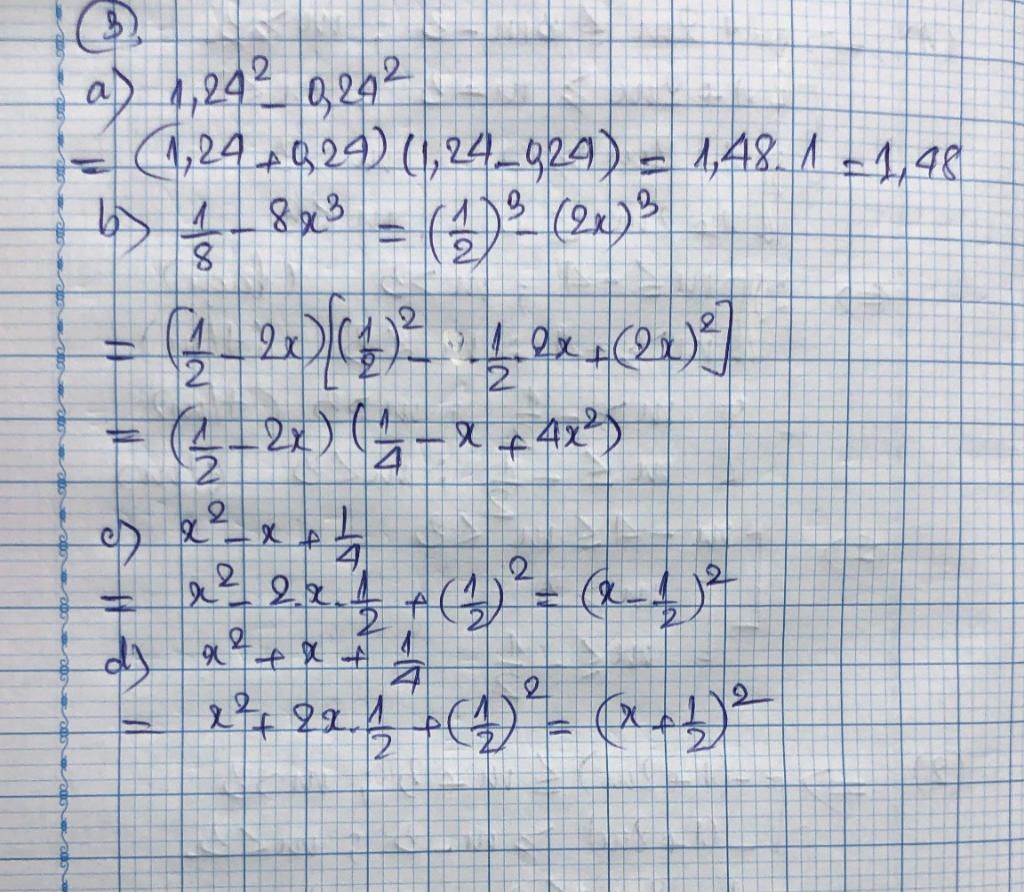 3
a) 1,24² - 0,24²
= (1,24 + 0,24) (1,24 - 0,24) = 1,48 . 1 = 1,48
b) 1/8 - 8x³ = (1/2)³ - (2x)³
= (1/2 - 2x) [(1/2)² - . 1/2 . 2x + (2x)²]
= (1/2 - 2x) (1/4 - x + 4x²)
c) x² - x + 1/4
= x² - 2.x . 1/2 + (1/2)² = (x - 1/2)²
d) x² + x + 1/4
= x² + 2x . 1/2 + (1/2)² = (x + 1/2)²